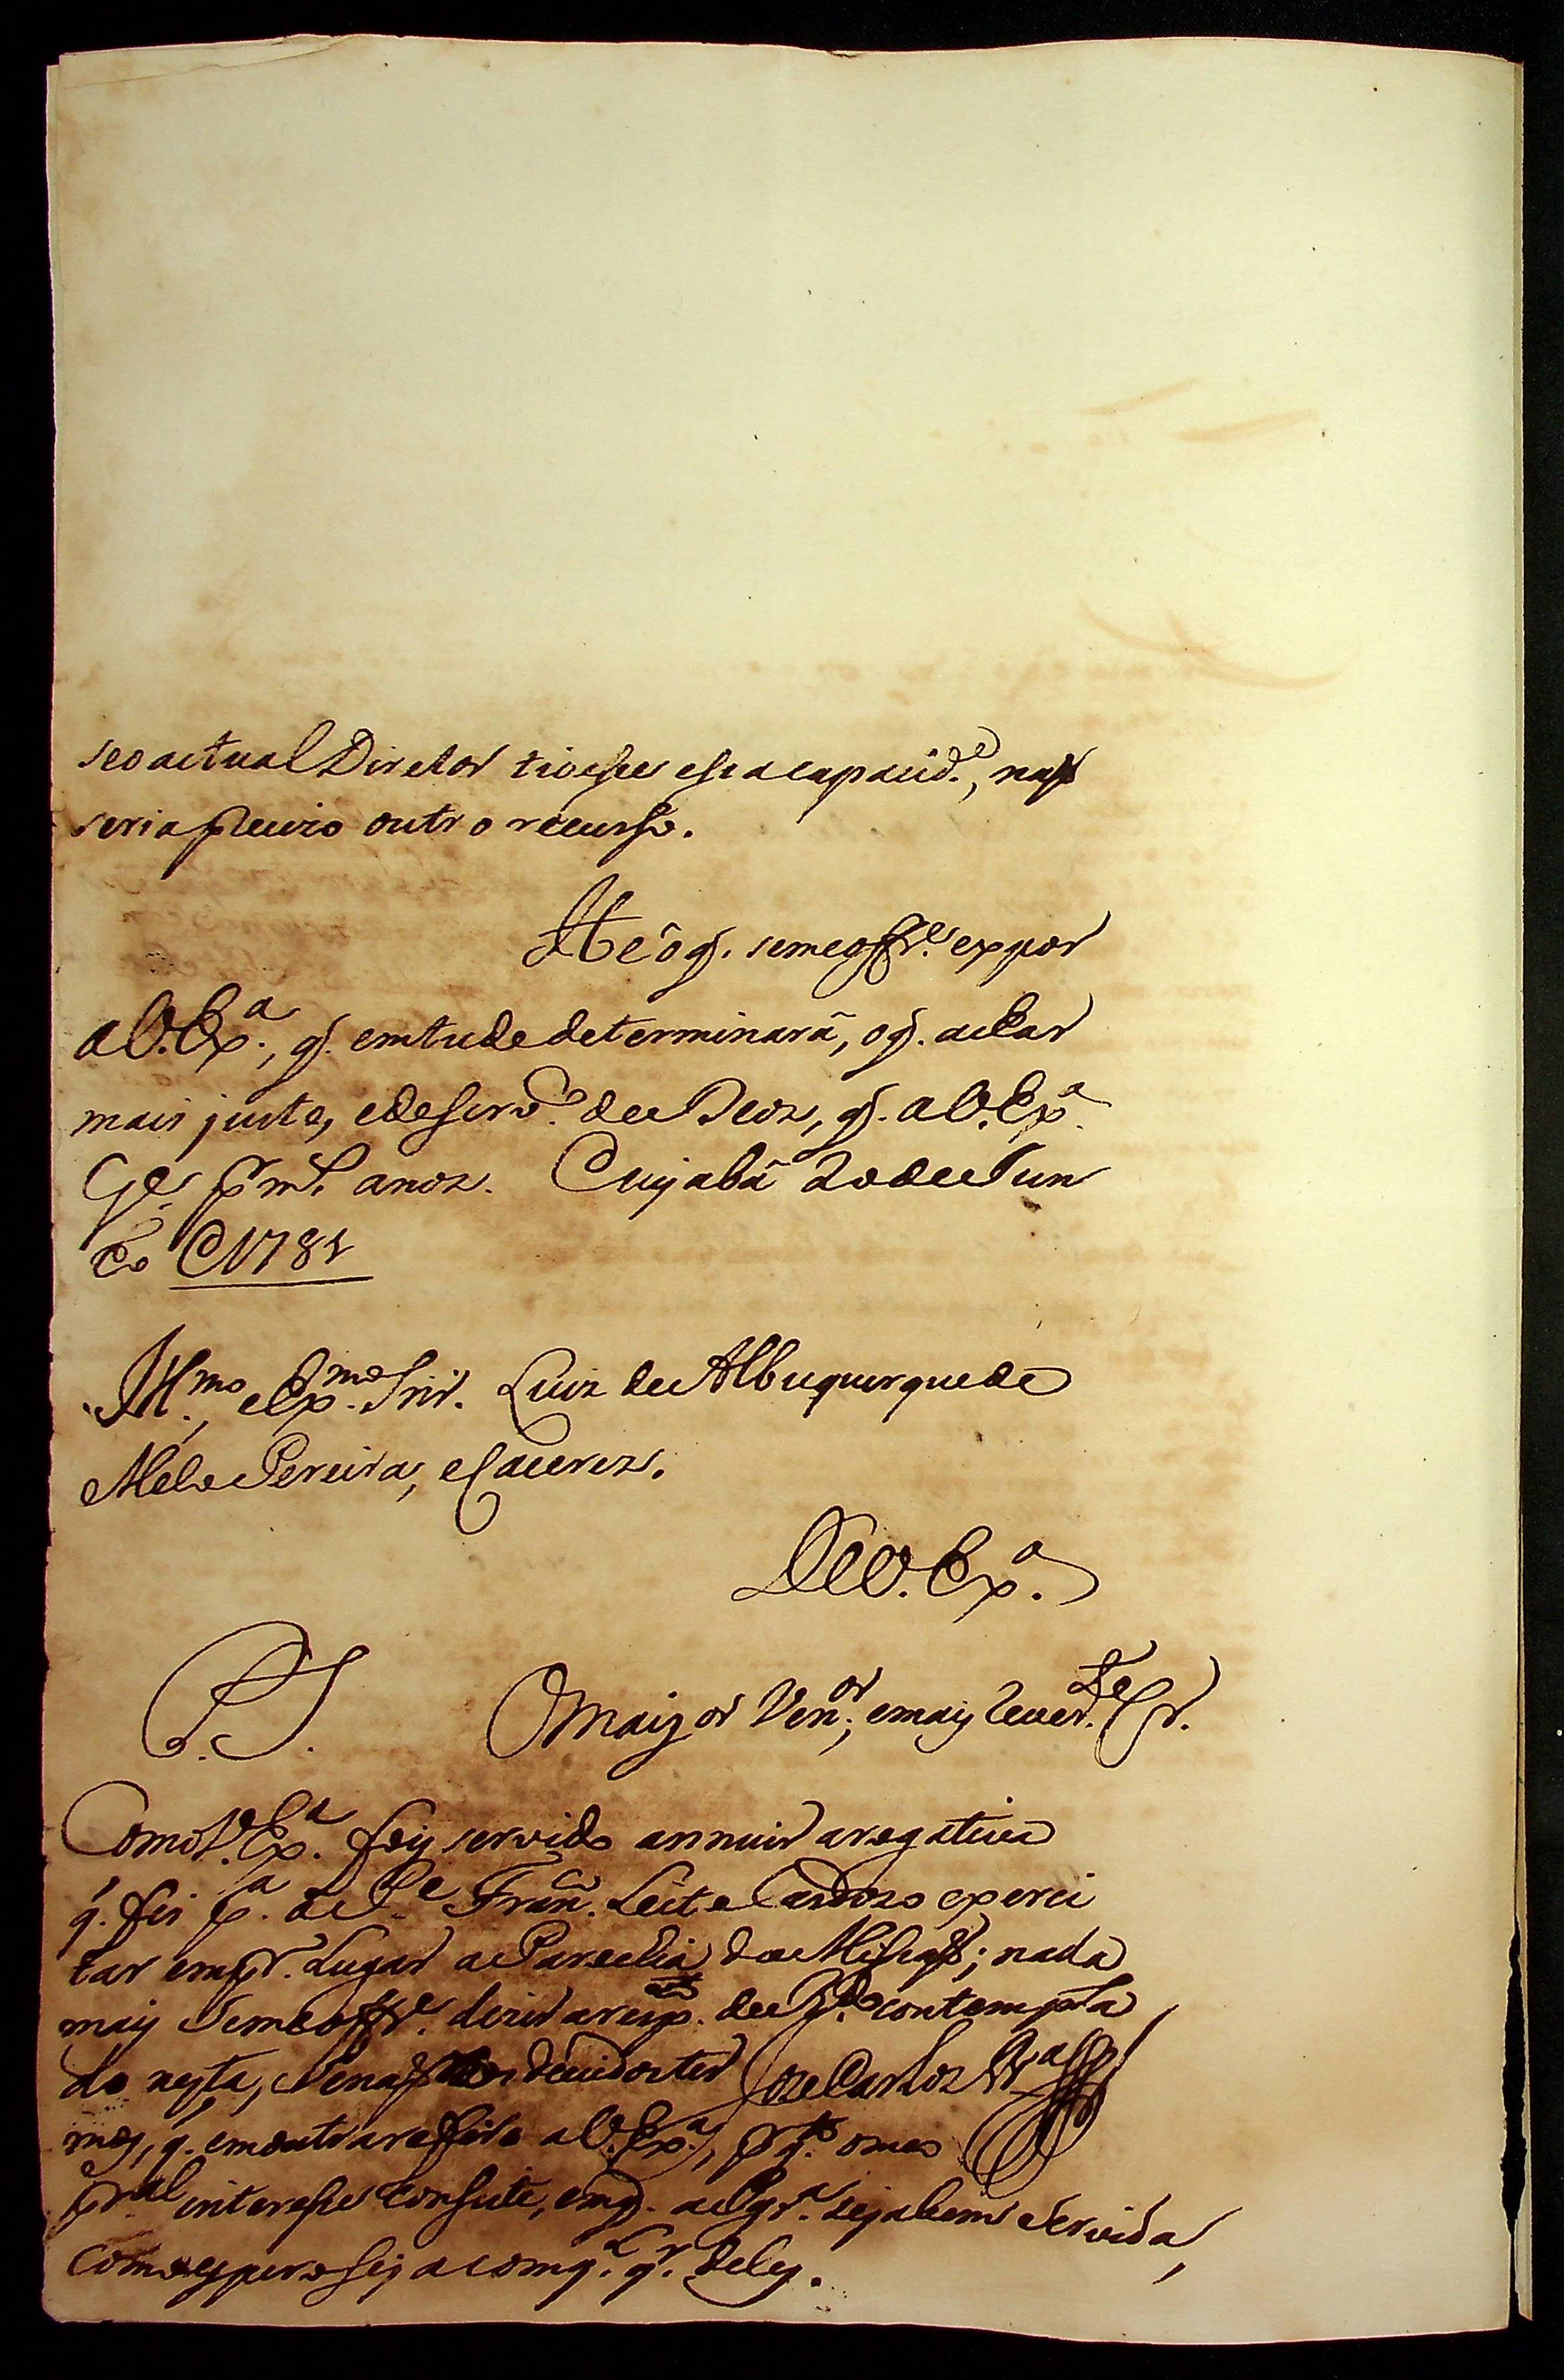 seo actual Diretor tivesse essa capacid.e, naõ
seria precizo outro recurso.
He o q. se me offr.e expor
a V. Ex.a, q. em tudo determinará, o q. achar
mais justo, e de serv.o de Deos, q. a V. Ex.a
G.e p.r m.s anos. Cuyabá 20 de Jun
ho 1781
Ill.mo, e Ex.mo Snr. Luiz de Albuquerque de
Melo Pereira, e Caceres.
De V. Ex.a
P.S.
O mayor Ven.or, e may rever.te Cr.
Como V. Ex.a foy servido annuir a rogativa
q. fis p.a o P.e Fran.co Leite Cardozo exerci
tar em pr. Lugar a Parochia das Missoẽs; nada
may se me offr.e dizer a resp.to de q.do contempla
do nesta, e senaõ dos
Joze Carlos Pr.a
mos, q. em outra refiro a V. Ex.a, p.r q.to o meo
pr.al interesse consiste, em q. a Igr.a seja bem servida,
como espero seja com q.l q.r deles.